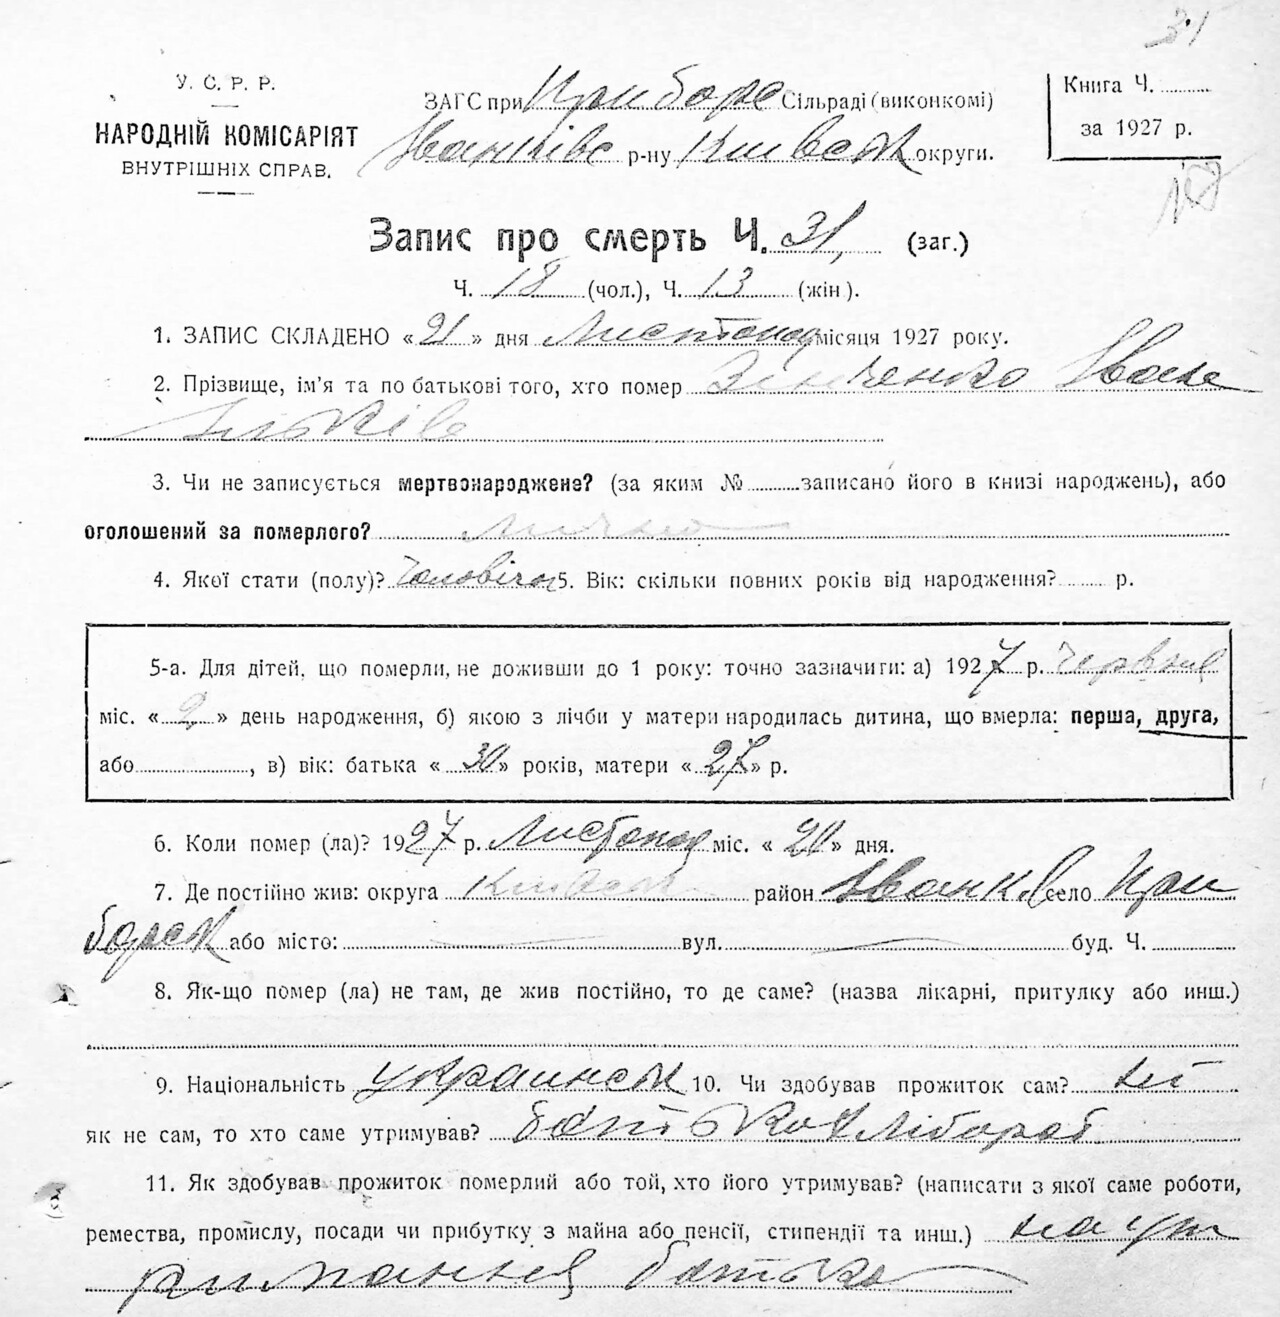 31
У. С. Р. Р.
НАРОДНІЙ КОМІСАРІЯТ
ВНУТРІШНІХ СПРАВ.
ЗАГС при Приборс Сільраді (виконкомі)
Іванківс р-ну Київськ округи.
Книга Ч. ..........
за 1927 р.
Запис про смерть Ч. 31, (заг.)
Ч. 18 (чол.), Ч. 13 (жін).
1. ЗАПИС СКЛАДЕНО « 21 » дня Листопад місяця 1927 року.
2. Прізвище, ім'я та по батькові того, хто помер Зінченко Іван
Ільків
3. Чи не записується мертвонароджене? (за яким № ..........записано його в книзі народжень), або
оголошений за померлого?
4. Якої стати (полу)? Чоловічої 5. Вік: скільки повних років від народження? ...... р.
5-а. Для дітей, що померли, не доживши до 1 року: точно зазначити: а) 1927 р. Червня
міс. « 2 » день народження, б) якою з лічби у матери народилась дитина, що вмерла: перша, друга,
або................, в) вік: батька « 30 » років, матери « 27 » р.
6. Коли помер (ла)? 1927 р. Листопад міс. « 20 » дня.
7. Де постійно жив: округа Київськ район Іванків село При
борськ або місто: вул. буд. Ч. ..........
8. Як-що помер (ла) не там, де жив постійно, то де саме? (назва лікарні, притулку або инш.)
9. Національність украинськ 10. Чи здобував прожиток сам? ні
як не сам, то хто саме утримував? батько хлібороб
11. Як здобував прожиток померлий або той, хто його утримував? (написати з якої саме роботи,
ремества, промислу, посади чи прибутку з майна або пенсії, стипендії та инш.) на ут
римання батька